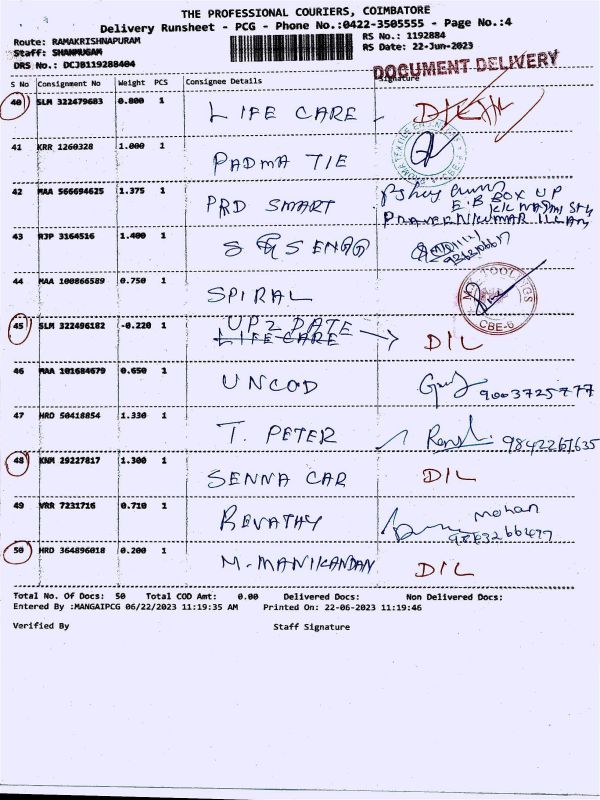 THE PROFESSIONAL COURIERS, COIMBATORE
Delivery Runsheet - PCG - Phone No.:0422-3505555 - Page No.:4
Route: RAMAKRISHNAPURAM
RS No.: 1192884
Staff: SHANMUGAM
RS Date: 22-Jun-2023
DRS No.: DCJB119288404
DOCUMENT DELIVERY
S No Consignment No Weight PCS Consignee Details Signature
40 SLM 322479683 0.800 1 LIFE CARE
41 KRR 1260328 1.000 1 PADMA TIE
42 MAA 566694625 1.375 1 PRD SMART
E.B BOX UP
43 RJP 3164516 1.400 1
44 MAA 100866589 0.750 1 SPIRAL
TOOLINGS
CBE-6
45 SLM 322496182 -0.220 1 UP2 DATE
LIFE CARE D/L
46 MAA 101684679 0.650 1 UNCOD 9003725777
47 HRD 50418854 1.330 1 T. PETER 9842261635
48 KNM 29227817 1.300 1 SENNA CAR D/L
49 VRR 7231716 0.710 1 REVATHY mohan
50 HRD 364896018 0.200 1 M. MANIKANDAN D/L
Total No. Of Docs: 50 Total COD Amt: 0.00 Delivered Docs: Non Delivered Docs:
Entered By :MANGAIPCG 06/22/2023 11:19:35 AM Printed On: 22-06-2023 11:19:46
Verified By Staff Signature